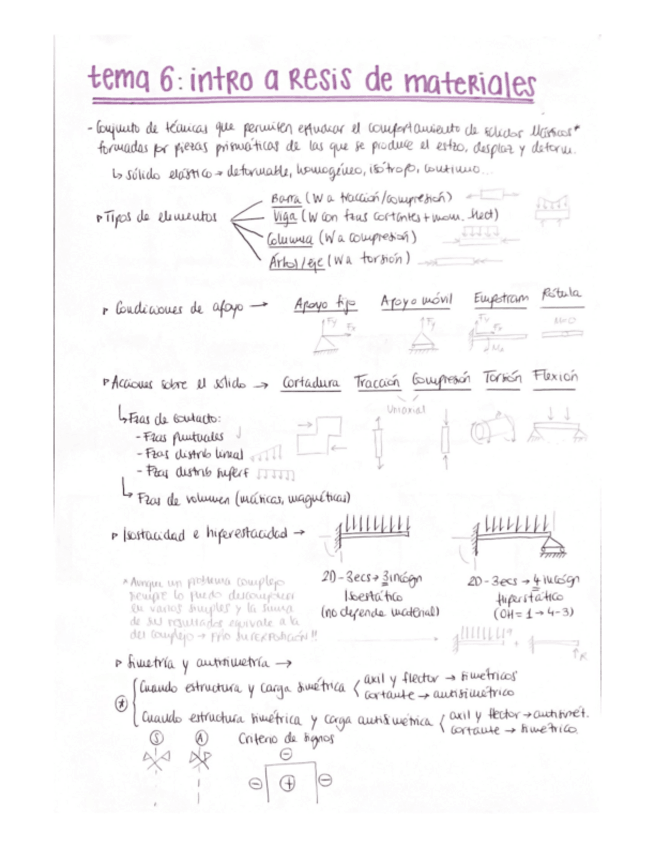 tema 6: intro a Resis de materiales
- Conjunto de técnicas que permiten estudiar el comportamiento de sólidos elásticos*
formadas por piezas prismáticas de las que se produce el esfzo, desplaz y deform.
↳ sólido elástico → deformable, homogéneo, isótropo, continuo...
Barra (W a tracción/compresión)
▸ Tipos de elementos
Viga (W con fzas cortantes + mom. flect)
Columna (W a compresión)
Árbol/eje (W a torsión)
▸ Condiciones de apoyo → Apoyo fijo Apoyo móvil Empotram Rótula
Fy Fx Fy Fy Fx M=0
▸ Acciones sobre el sólido → Cortadura Tracción Compresión Torsión Flexión
Uniaxial
↳ Fzas de contacto:
- Fzas puntuales
- Fzas distrib lineal
- Fzas distrib superf
↳ Fzas de volumen (másicas, magnéticas)
▸ Isostacidad e hiperestacidad →
2D - 3ecs → 3 incógn
Isostático
(no depende material)
2D - 3ecs → 4 incógn
Hiperstático
(GH = 1 → 4-3)
* Aunque un problema complejo
siempre lo puedo descomponer
en varios simples y la suma
de sus resultados equivale a la
del complejo → PPIO SUPERPOSICIÓN!!
+ R
▸ Simetría y antisimetría →
* Cuando estructura y carga simétrica axil y flector → simétricos
cortante → antisimétrico
Cuando estructura simétrica y carga antisimétrica axil y flector → antisimét.
cortante → simétrico.
S A Criterio de signos
-
- + -